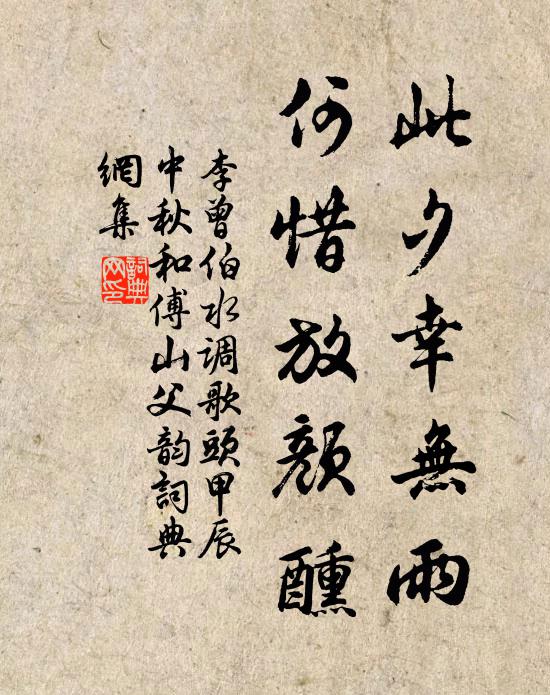 此夕幸無雨
何惜放顏醺
李曾伯水调歌頭甲辰
中秋和傅山父韵詞典
網集
詞典
网印